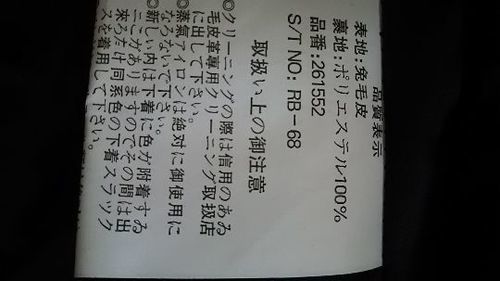 品質表示
表地:兔毛皮
裏地:ポリエステル100%
品番:261552
S/T NO: RB-68
取扱い上の御注意
◎クリーニングの際は信用のある
毛皮革専用クリーニング取扱店
に出して下さい。
◎蒸気アイロンは絶対に御使用に
ならないで下さい。
◎新しい内は下着に色が附着する
ことがありますのでその間は出
来るだけ同系色の下着スラック
スを着用して下さい。